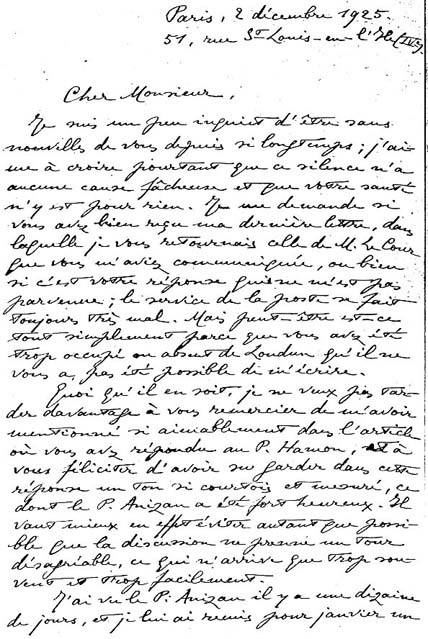 Paris, 2 décembre 1925.
51, rue St Louis-en-l'Ile (IVe)
Cher Monsieur,
Je suis un peu inquiet d'être sans
nouvelles de vous depuis si longtemps ; j'ai-
me à croire pourtant que ce silence n'a
aucune cause fâcheuse et que votre santé
n'y est pour rien. Je me demande si
vous avez bien reçu ma dernière lettre, dans
laquelle je vous retournais celle de M. Le Cour
que vous m'aviez communiquée, ou bien
si c'est votre réponse qui ne m'est pas
parvenue ; le service de la poste se fait
toujours très mal. Mais peut-être est-ce
tout simplement parce que vous avez été
trop occupé ou absent de Loudun qu'il ne
vous a pas été possible de m'écrire.
Quoi qu'il en soit, je ne veux pas tar-
der davantage à vous remercier de m'avoir
mentionné si aimablement dans l'article
où vous avez répondu au P. Hamon, et à
vous féliciter d'avoir su garder dans cette
réponse un ton si courtois et mesuré, ce
dont le P. Anizan a été fort heureux. Il
vaut mieux en effet éviter autant que possi-
ble que la discussion ne prenne un tour
désagréable, ce qui n'arrive que trop sou-
vent et trop facilement.
J'ai vu le P. Anizan il y a une dizaine
de jours, et je lui ai remis pour janvier un